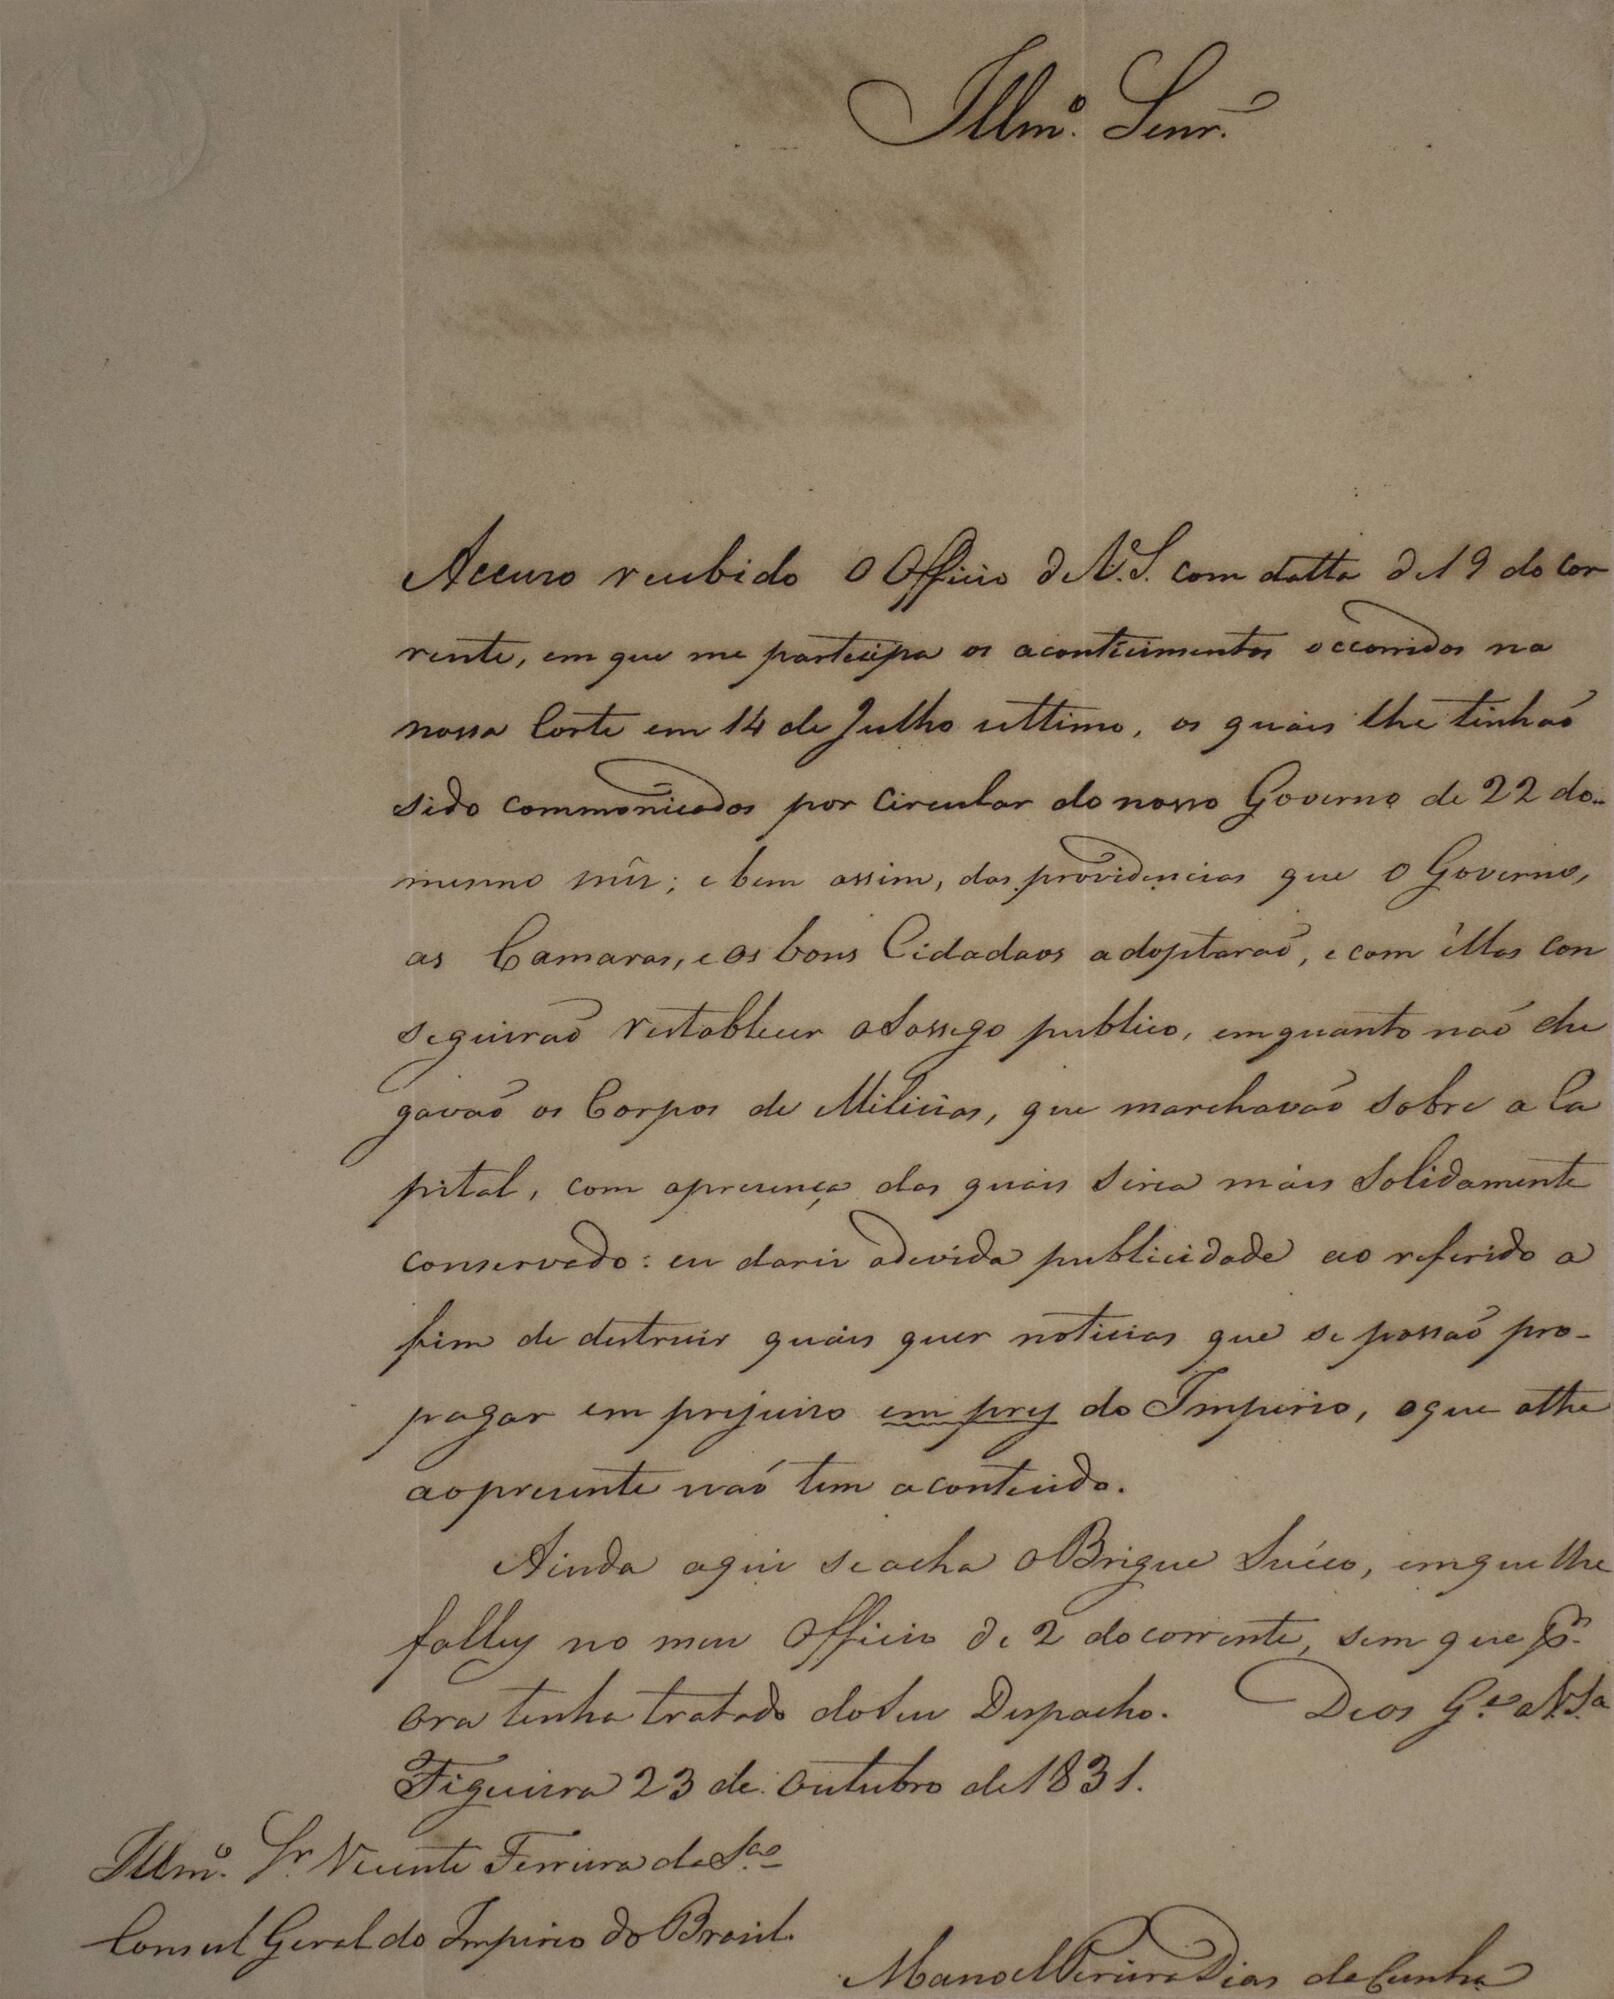 Illmo. Senr.
Accuso recebido o Officio de V.S. com datta de 19 do cor
rente, em que me participa os aconticimentos occorridos na
nossa Corte em 14 de Julho ultimo, os quais lhe tinhaõ
sido commonicados por Circular do nosso Governo de 22 do
mesmo mês; e bem assim, das providencias que o Governo,
as Camaras, e os bons Cidadaos adoptaraõ, e com éllas con
seguiraõ restablecer o Sossego publico, emquanto naõ che
gavaõ os Corpos de Milicias, que marchavaõ sobre a Ca
pital, com apresença dos quais seria mais Solidamente
conservado: eu darei adevida publicidade ao referido a
fim de destruir quais quer noticias que se possaõ pro-
pagar em prejuizo em prej do Imperio, oque athe
aopresente naõ tem acontecido.
Ainda aqui seacha o Brigue Suéco, emque lhe
falley no meu Officio de 2 do corrente, sem que pr.
ora tenha tratado doseu Despacho. Deos Ge. a V.Sa
Figueira 23 de Outubro de 1831.
Illmo. Sr. Vicente Ferreira da Sa
Consul Geral do Imperio do Brasil.
Manoel Pereira Dias da Cunha